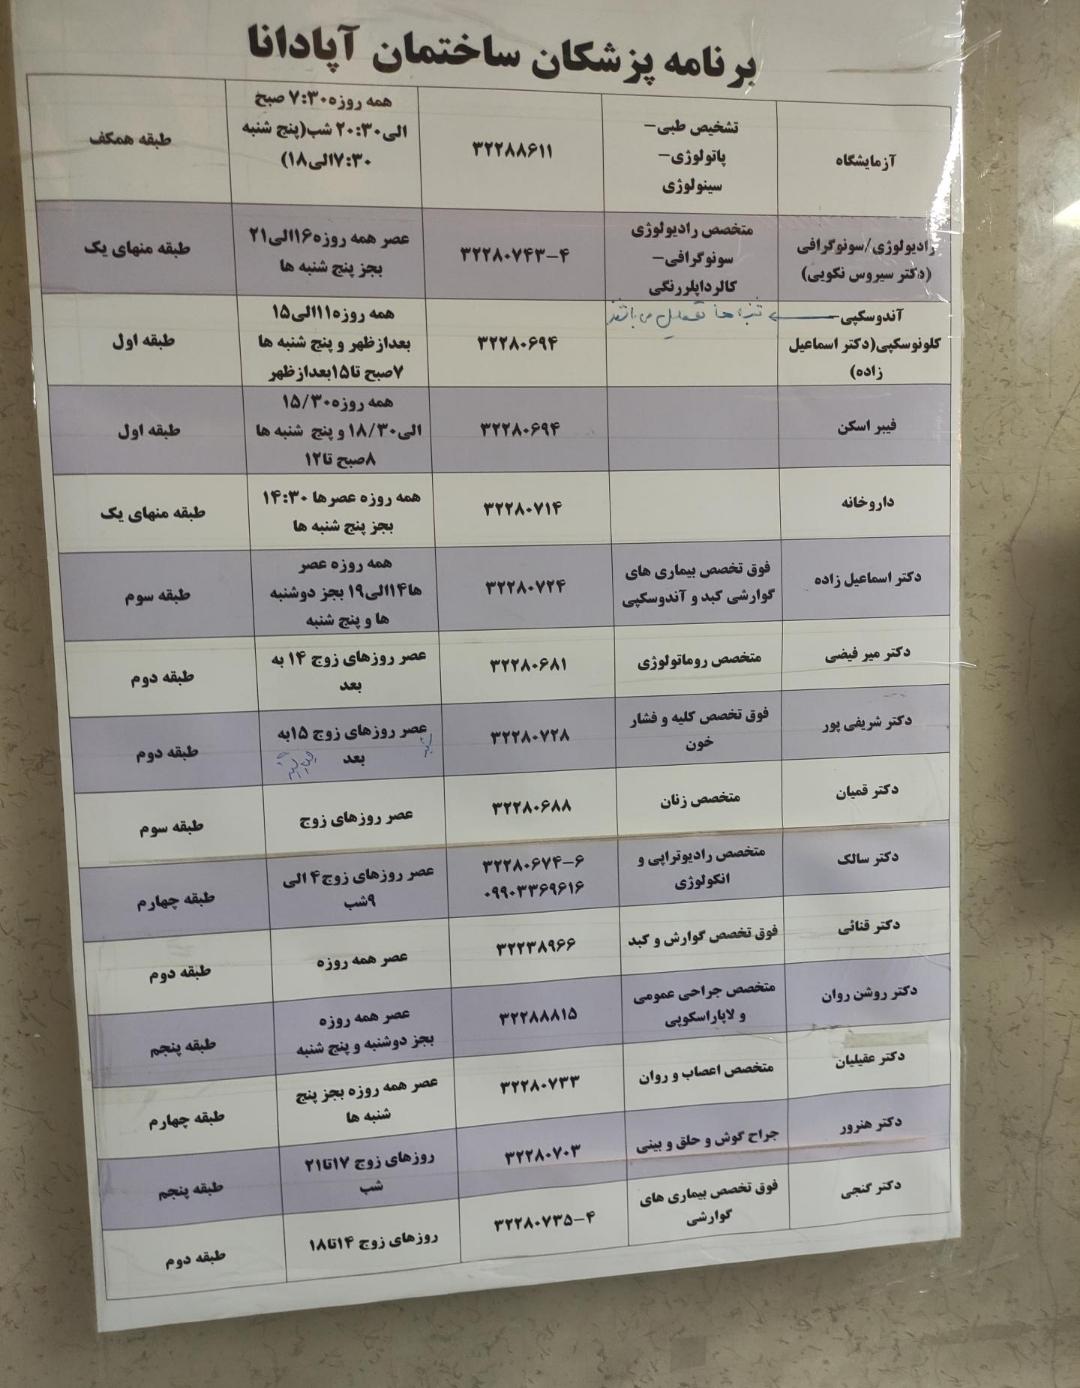 برنامه پزشکان ساختمان آپادانا
آزمایشگاه
تشخیص طبی-
پاتولوژی-
سیتولوژی
۳۲۲۸۸۶۱۱
همه روزه ۷:۳۰ صبح
الی۲۰:۳۰ شب(پنج شنبه
۷:۳۰الی۱۸)
طبقه همکف
رادیولوژی/سونوگرافی
(دکتر سیروس نکویی)
متخصص رادیولوژی
سونوگرافی-
کالرداپلررنگی
۳۲۲۸۰۷۴۳-۴
عصر همه روزه۱۶الی۲۱
بجز پنج شنبه ها
طبقه منهای یک
آندوسکپی-
کلونوسکپی(دکتر اسماعیل
زاده)
شنبه ها تعطیل می باشد
۳۲۲۸۰۶۹۴
همه روزه۱۱الی۱۵
بعدازظهر و پنج شنبه ها
۷صبح تا۱۵بعدازظهر
طبقه اول
فیبر اسکن
۳۲۲۸۰۶۹۴
همه روزه۱۵/۳۰
الی۱۸/۳۰ و پنج شنبه ها
۸صبح تا۱۲
طبقه اول
داروخانه
۳۲۲۸۰۷۱۴
همه روزه عصرها ۱۴:۳۰
بجز پنج شنبه ها
طبقه منهای یک
دکتر اسماعیل زاده
فوق تخصص بیماری های
گوارشی کبد و آندوسکپی
۳۲۲۸۰۷۲۴
همه روزه عصر
ها۱۴الی۱۹ بجز دوشنبه
ها و پنج شنبه
طبقه سوم
دکتر میر فیضی
متخصص روماتولوژی
۳۲۲۸۰۶۸۱
عصر روزهای زوج ۱۴ به
بعد
طبقه دوم
دکتر شریفی پور
فوق تخصص کلیه و فشار
خون
۳۲۲۸۰۷۲۸
عصر روزهای زوج ۱۵به
بعد
طبقه دوم
دکتر قمیان
متخصص زنان
۳۲۲۸۰۶۸۸
عصر روزهای زوج
طبقه سوم
دکتر سالک
متخصص رادیوتراپی و
انکولوژی
۳۲۲۸۰۶۷۴-۶
۰۹۹۰۳۳۶۹۶۱۶
عصر روزهای زوج۴ الی
۹شب
طبقه چهارم
دکتر قنائی
فوق تخصص گوارش و کبد
۳۲۲۳۸۹۶۶
عصر همه روزه
طبقه دوم
دکتر روشن روان
متخصص جراحی عمومی
و لاپاراسکوپی
۳۲۲۸۸۸۱۵
عصر همه روزه
بجز دوشنبه و پنج شنبه
طبقه پنجم
دکتر عقیلیان
متخصص اعصاب و روان
۳۲۲۸۰۷۳۳
عصر همه روزه بجز پنج
شنبه ها
طبقه چهارم
دکتر هنرور
جراح گوش و حلق و بینی
۳۲۲۸۰۷۰۳
روزهای زوج ۱۷تا۲۱
شب
طبقه پنجم
دکتر گنجی
فوق تخصص بیماری های
گوارشی
۳۲۲۸۰۷۳۵-۴
روزهای زوج ۱۴تا۱۸
طبقه دوم